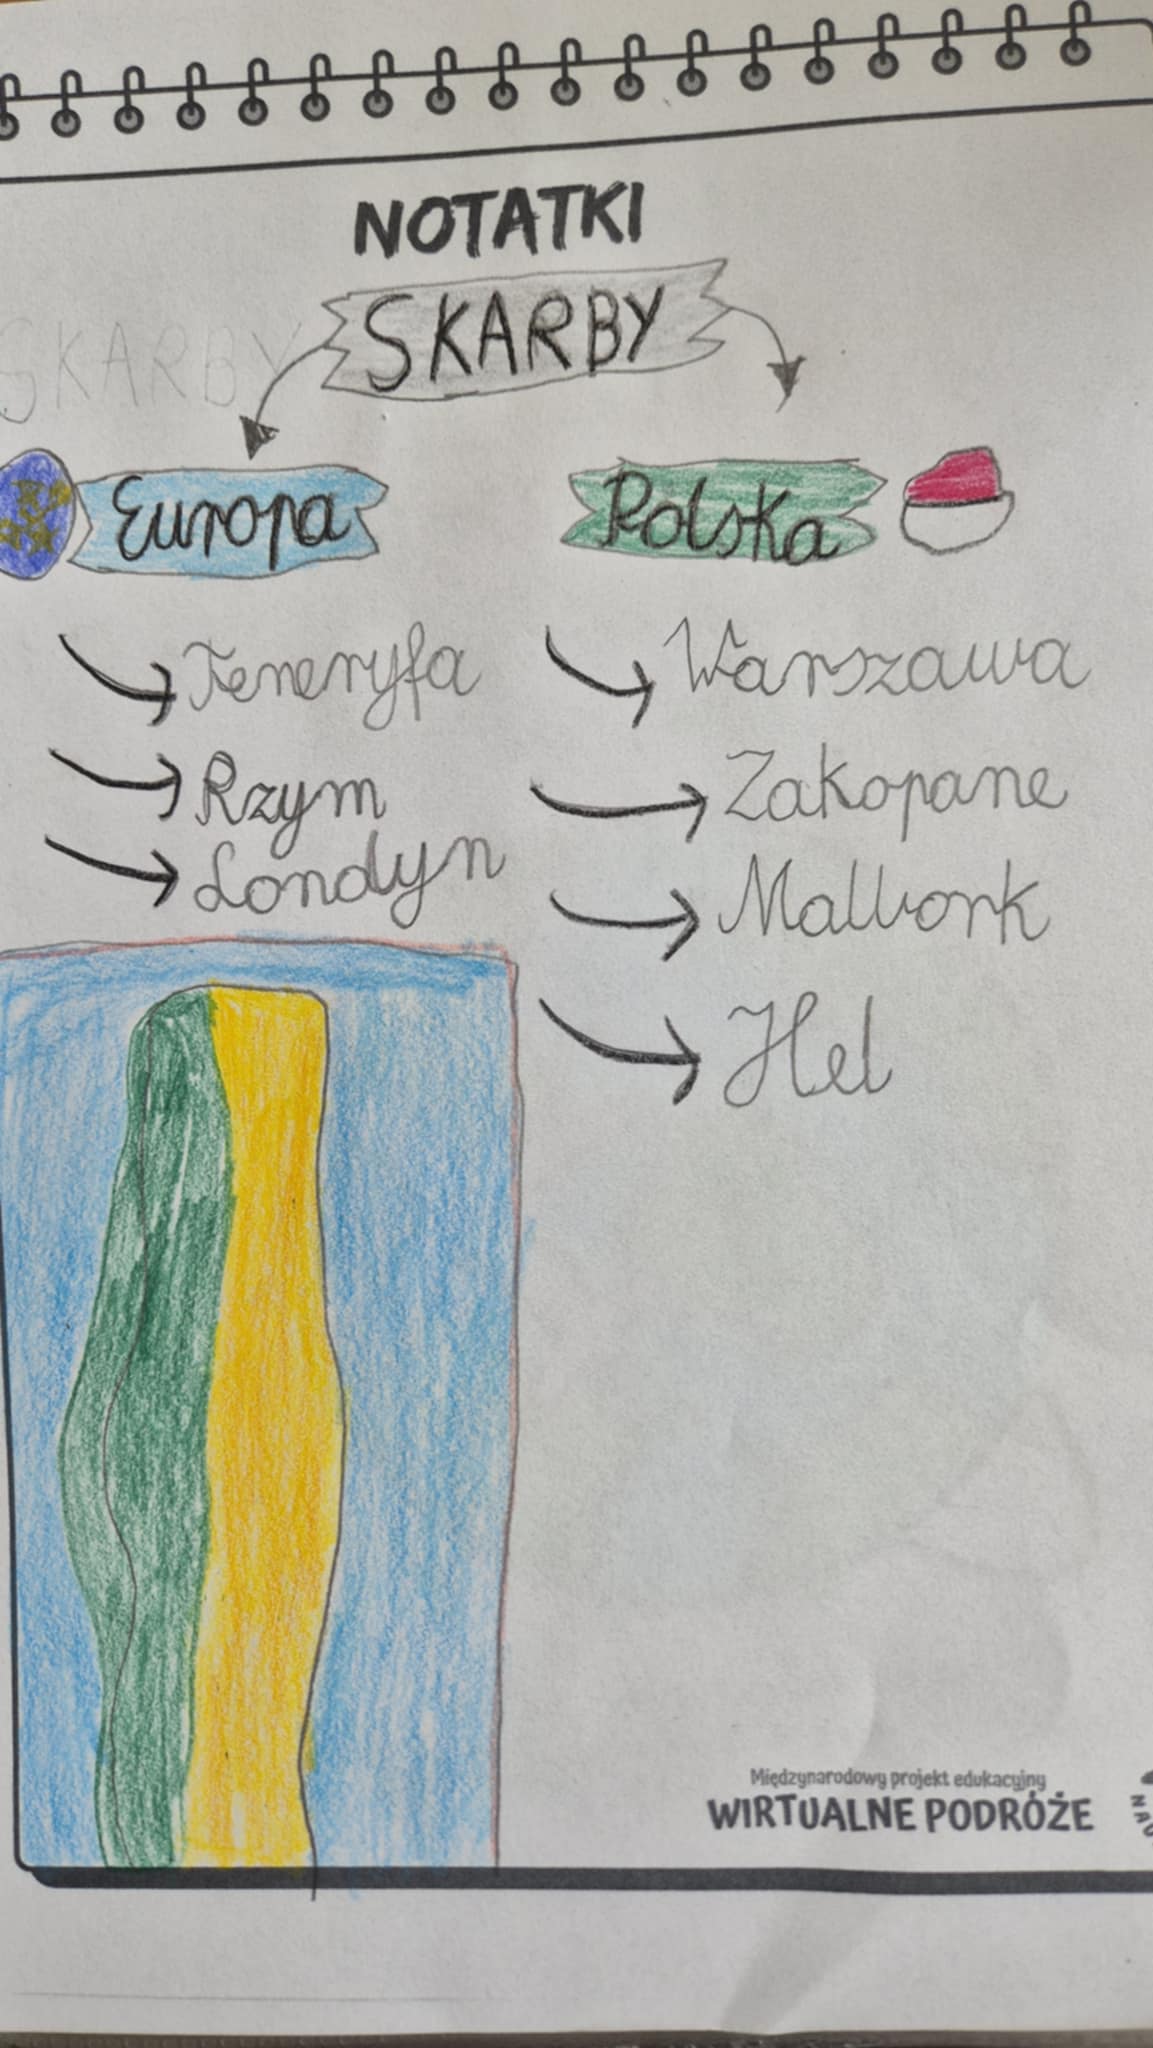 NOTATKI
SKARBY
SKARBY
Europa
Polska
Teneryfa
Rzym
Londyn
Warszawa
Zakopane
Malbork
Hel
Międzynarodowy projekt edukacyjny
WIRTUALNE PODRÓŻE